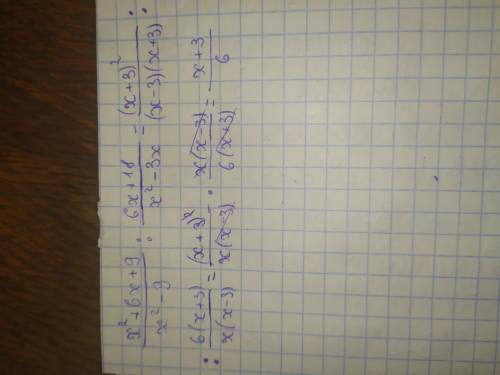 x²+6x+9/x²-9 : 6x+18/x²-3x = (x+3)²/(x-3)(x+3) :
: 6(x+3)/x(x-3) = (x+3)²/x(x-3) · x(x-3)/6(x+3) = x+3/6